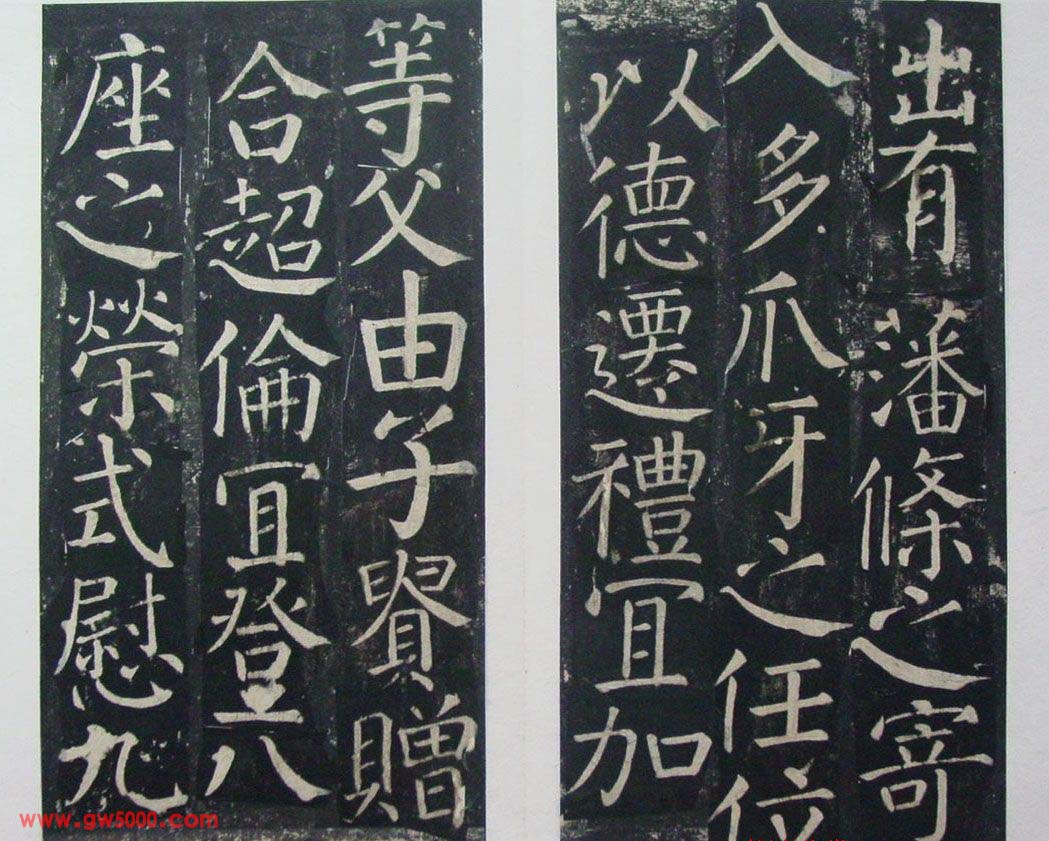 出有藩條之寄
入多爪牙之任位
以德遷禮宜加
等父由子貴贈
合超倫宜登八
座之榮式慰九
www.gw5000.com